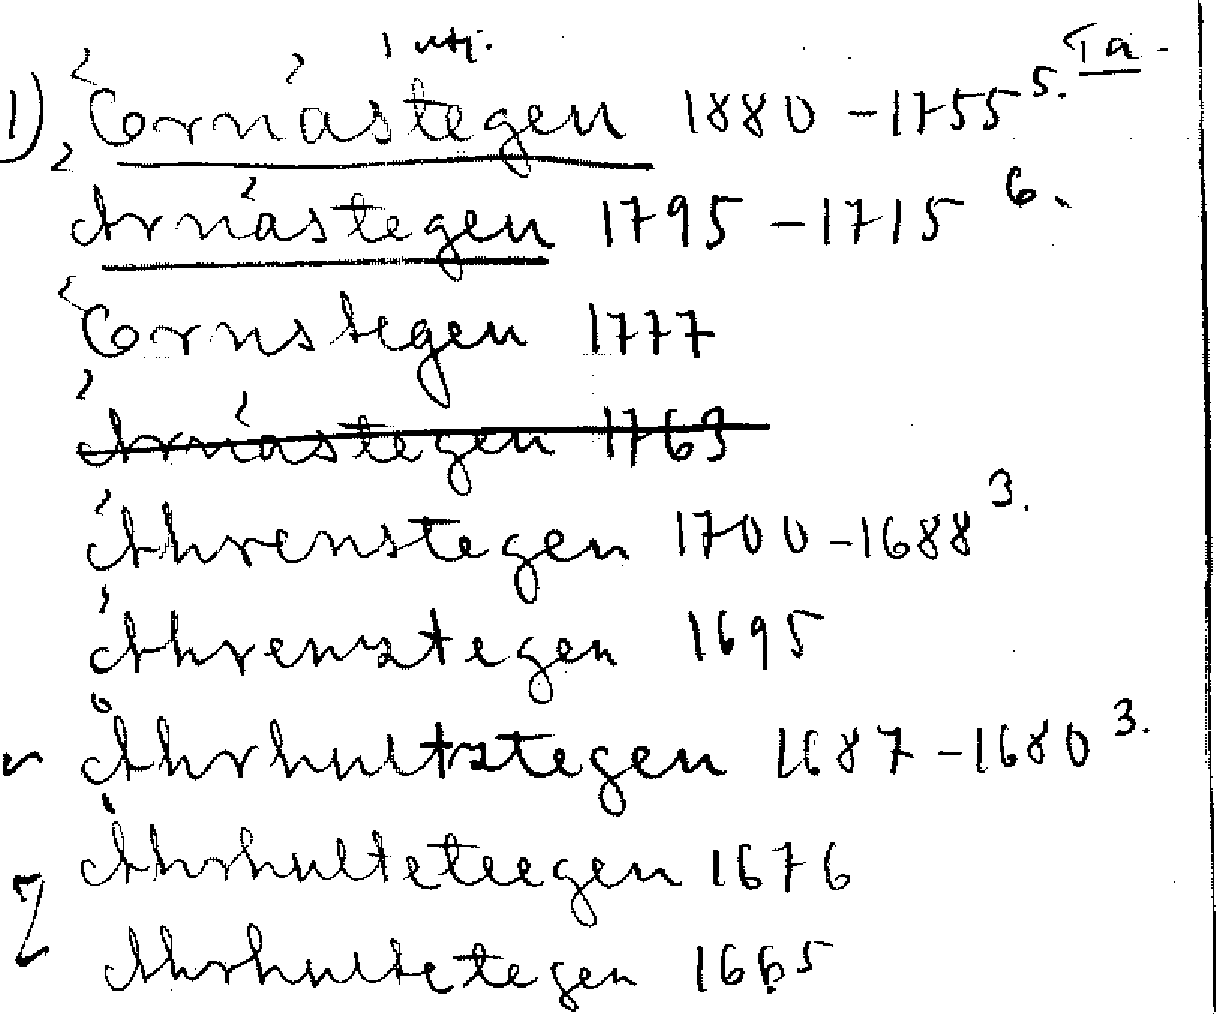 1 utj. Ta.
1) Örnästegen 1880 - 1755 5.
Ärnästegen 1795 - 1715 6.
Örnstegen 1777
Ärnästegen 1763
Åhrenstegen 1700 - 1688 3.
Åhrenztegen 1695
Åhrhultztegen 1687 - 1680 3.
Åhrhulteteegen 1676
Ahrhultetegen 1665